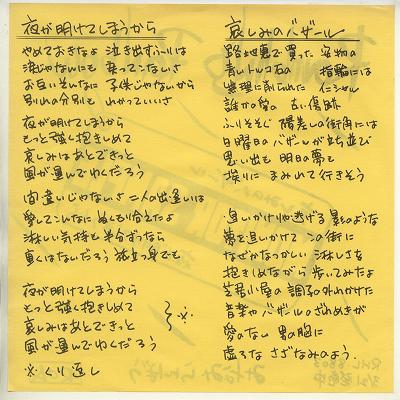 夜が明けてしまうから
やめておきなよ 泣き出すふりは
涙じゃなんにも 変ってこないさ
お互いそんなに 子供じゃないから
別れの分別も わかっていいさ
夜が明けてしまうから
もっと強く抱きしめて
哀しみはあとできっと
風が運んでゆくだろう
間違いじゃないさ 二人の出逢いは
愛してこんなに ぬくもり合えたよ
淋しい気持も 半分ずつなら
重くはないだろう 旅立つ身でも
夜が明けてしまうから
もっと強く抱きしめて
哀しみはあとできっと
風が運んでゆくだろう
※
※くり返し
哀しみのバザール
路地裏で買った 安物の
青いトルコ石の 指輪には
無理に削られた 古い傷跡
ふりそそぐ 陽差しの街角には
日曜日のバザールが立ち並び
思い出も 明日の夢も
埃りに まみれて行きそう
追いかけりゃ逃げる 影のような
夢を追いかけて この街に
なぜかなつかしい 淋しさを
抱きしめながら 歩いてみたよ
芝居小屋の 調子の外れかけた
音楽やバザールのざわめきが
愛のない 男の胸に
虚ろな さざなみのよう.
みなみらんぼう